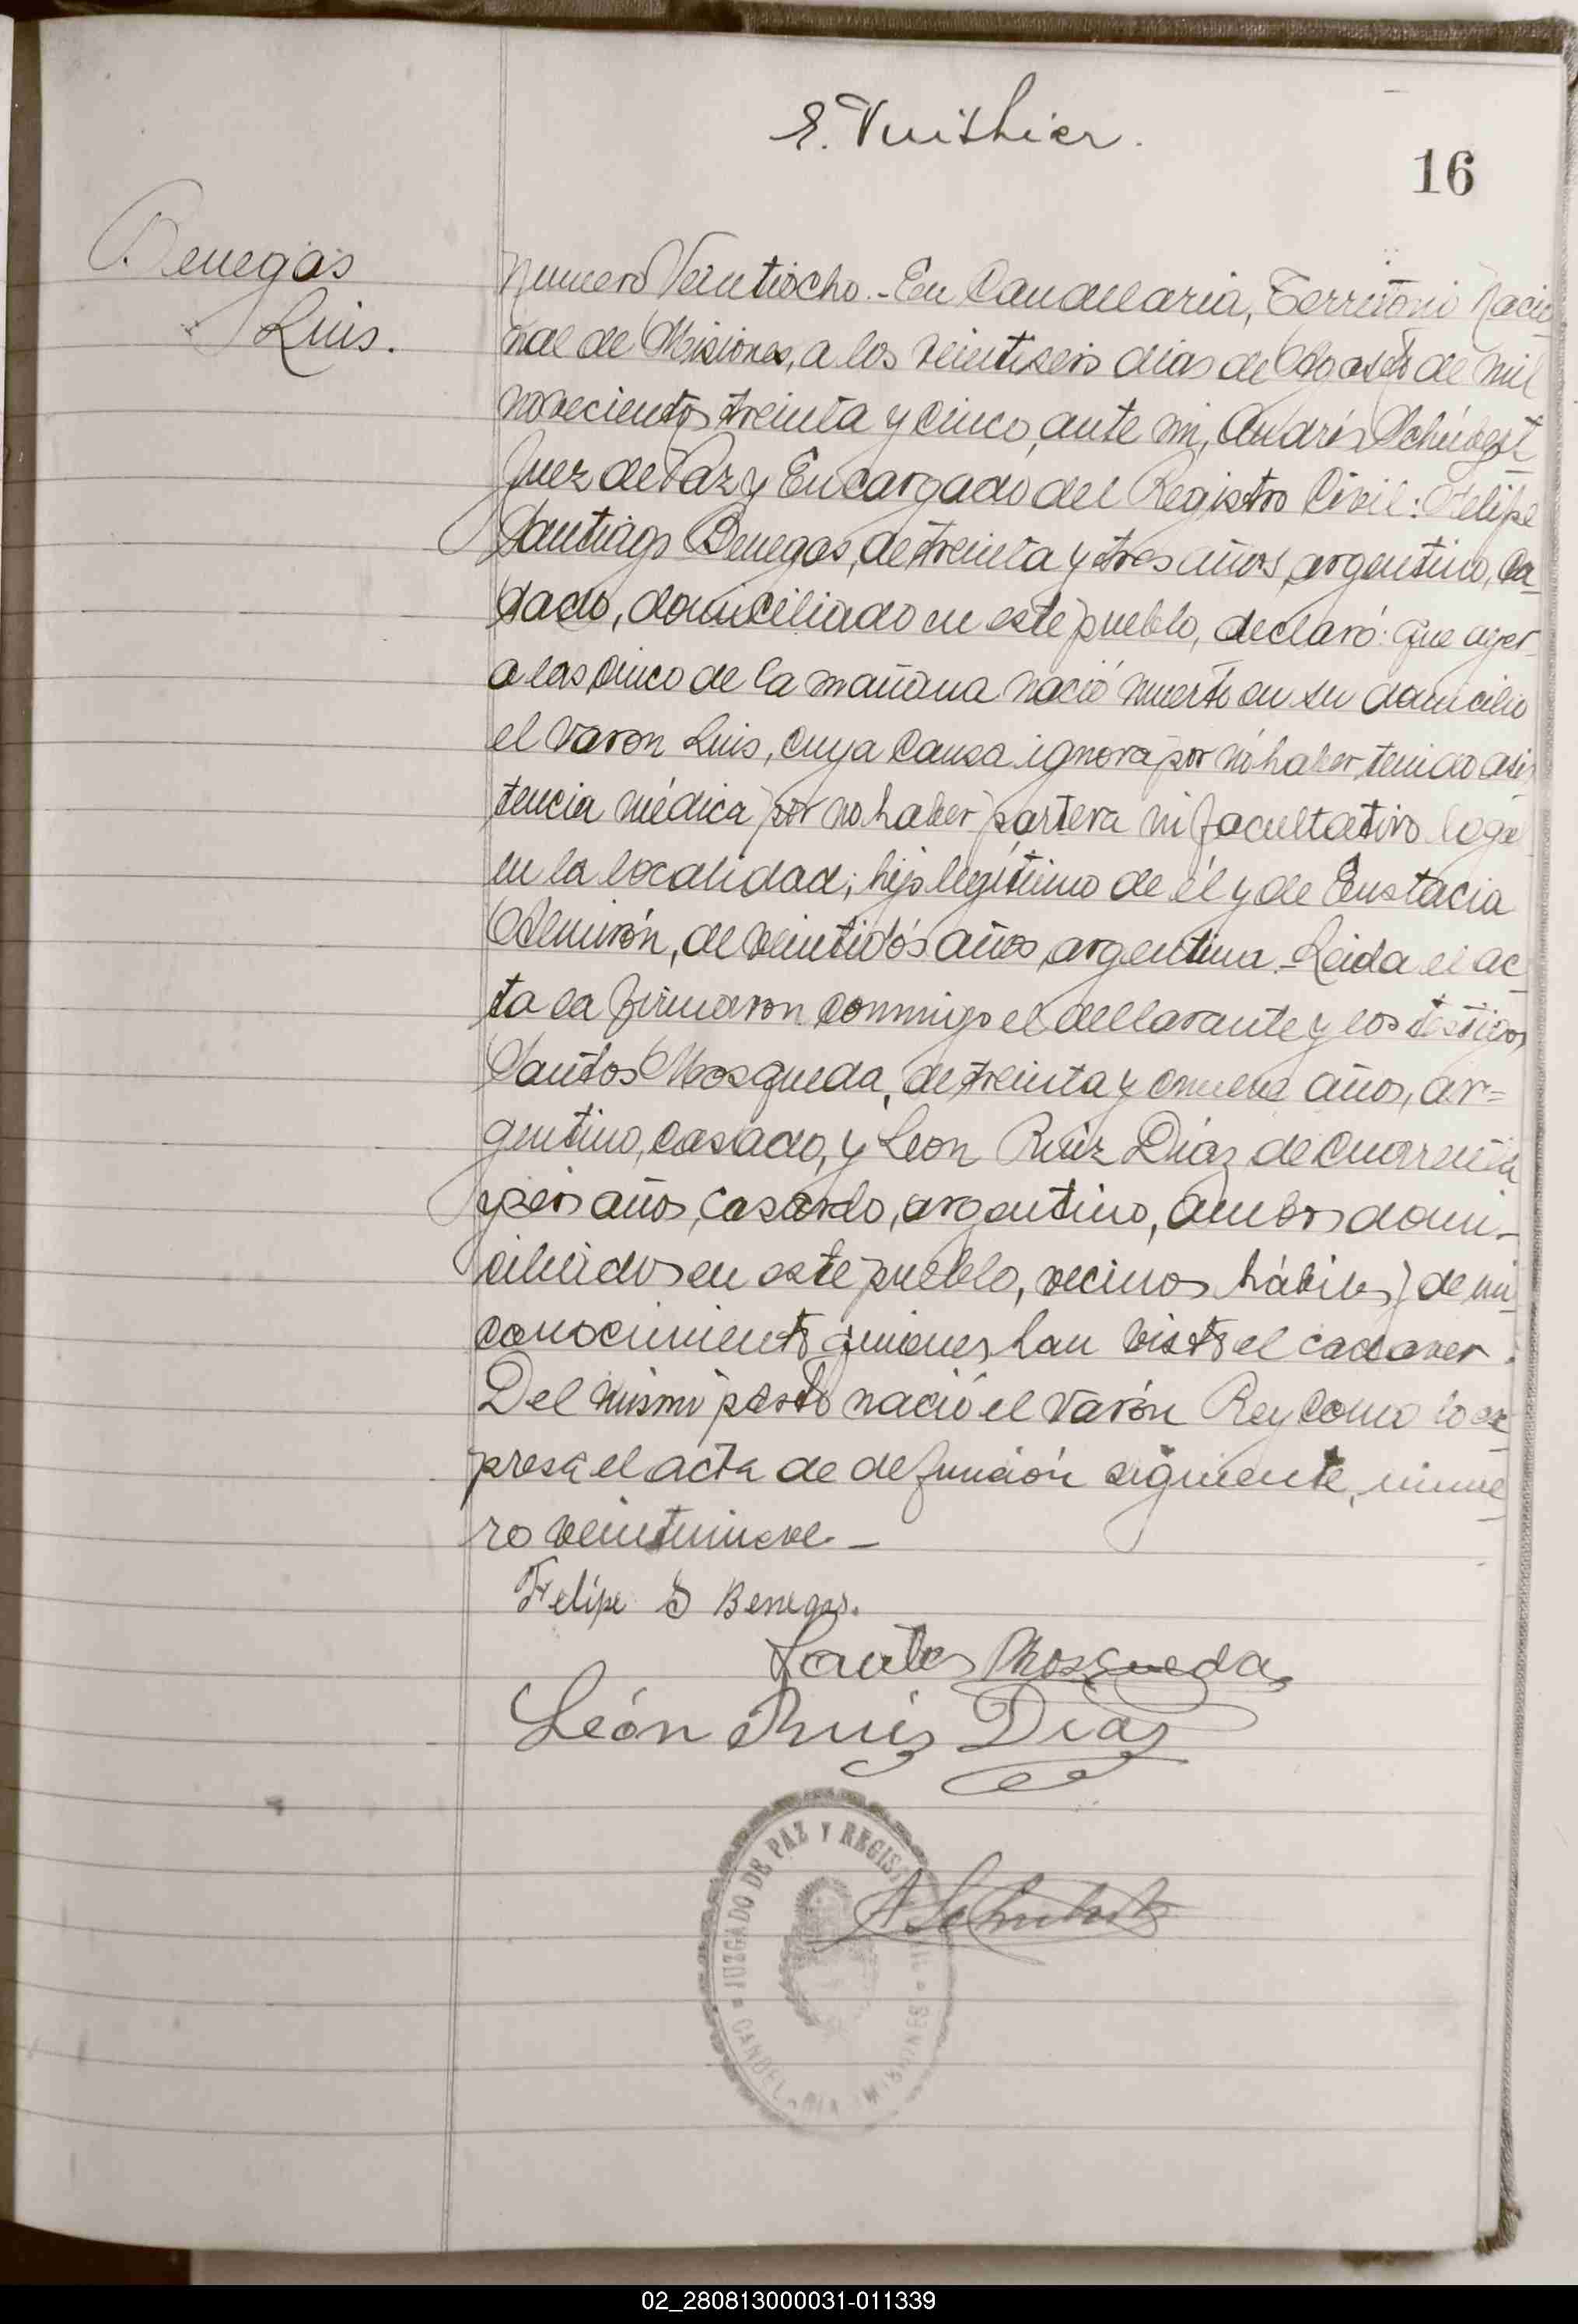 E. Vuithier.
16
Benegas
Luis.
Numero Veintiocho.- En Candelaria, Territorio Nacio
nal de Misiones, a los veintiseis dias de Agosto de mil
novecientos treinta y cinco, ante mi, Andrés Schubert
Juez de Paz y Encargado del Registro Civil: Felipe
Santiago Benegas, de treinta y tres años, argentino, ca
sado, domiciliado en este pueblo, declaró: que ayer
a las cinco de la mañana nació muerto en su domicilio
el varon Luis, cuya causa ignora por no haber tenido asis
tencia médica por no haber partera ni facultativo
en la localidad; hijo legítimo de él y de Eustacia
Almirón, de veintidós años, argentina.- Leida el ac
ta la firmaron conmigo el declarante y los testigos
Santos Mosqueda, de treinta y nueve años, ar=
gentino, casado, y Leon Ruiz Diaz de cuarenta
y seis años, casado, argentino, ambos domi-
ciliados en este pueblo, vecinos hábiles, de mi
conocimiento quienes han visto el cadaver.
Del mismo parto nació el varón Rey como lo ex
presa el acta de defunción siguiente, nume
ro veintinueve -
Felipe S Benegas.
Santos Mosqueda
León Ruiz Diaz
A Schubert
JUZGADO DE PAZ Y REGIS
CANDELARIA MISIONES
02_280813000031-011339